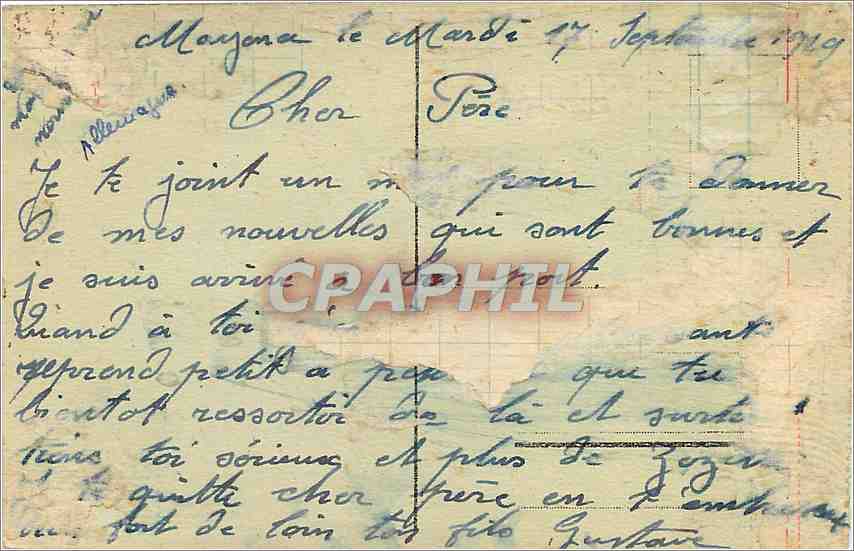 Mayence le Mardi 17 Septembre 1919
Allemagne.
Cher Père
Je te joint un mot pour te donner
de mes nouvelles qui sont bonnes et
je suis arrivé a bon port.
CPAPHIL
Quand à toi
reprend petit a peu que tu
bientot ressortoi de là et surtout
tiens toi sérieux et plus de
Je te quitte cher père en t'embrassant
bien fort de loin ton fils Gustave